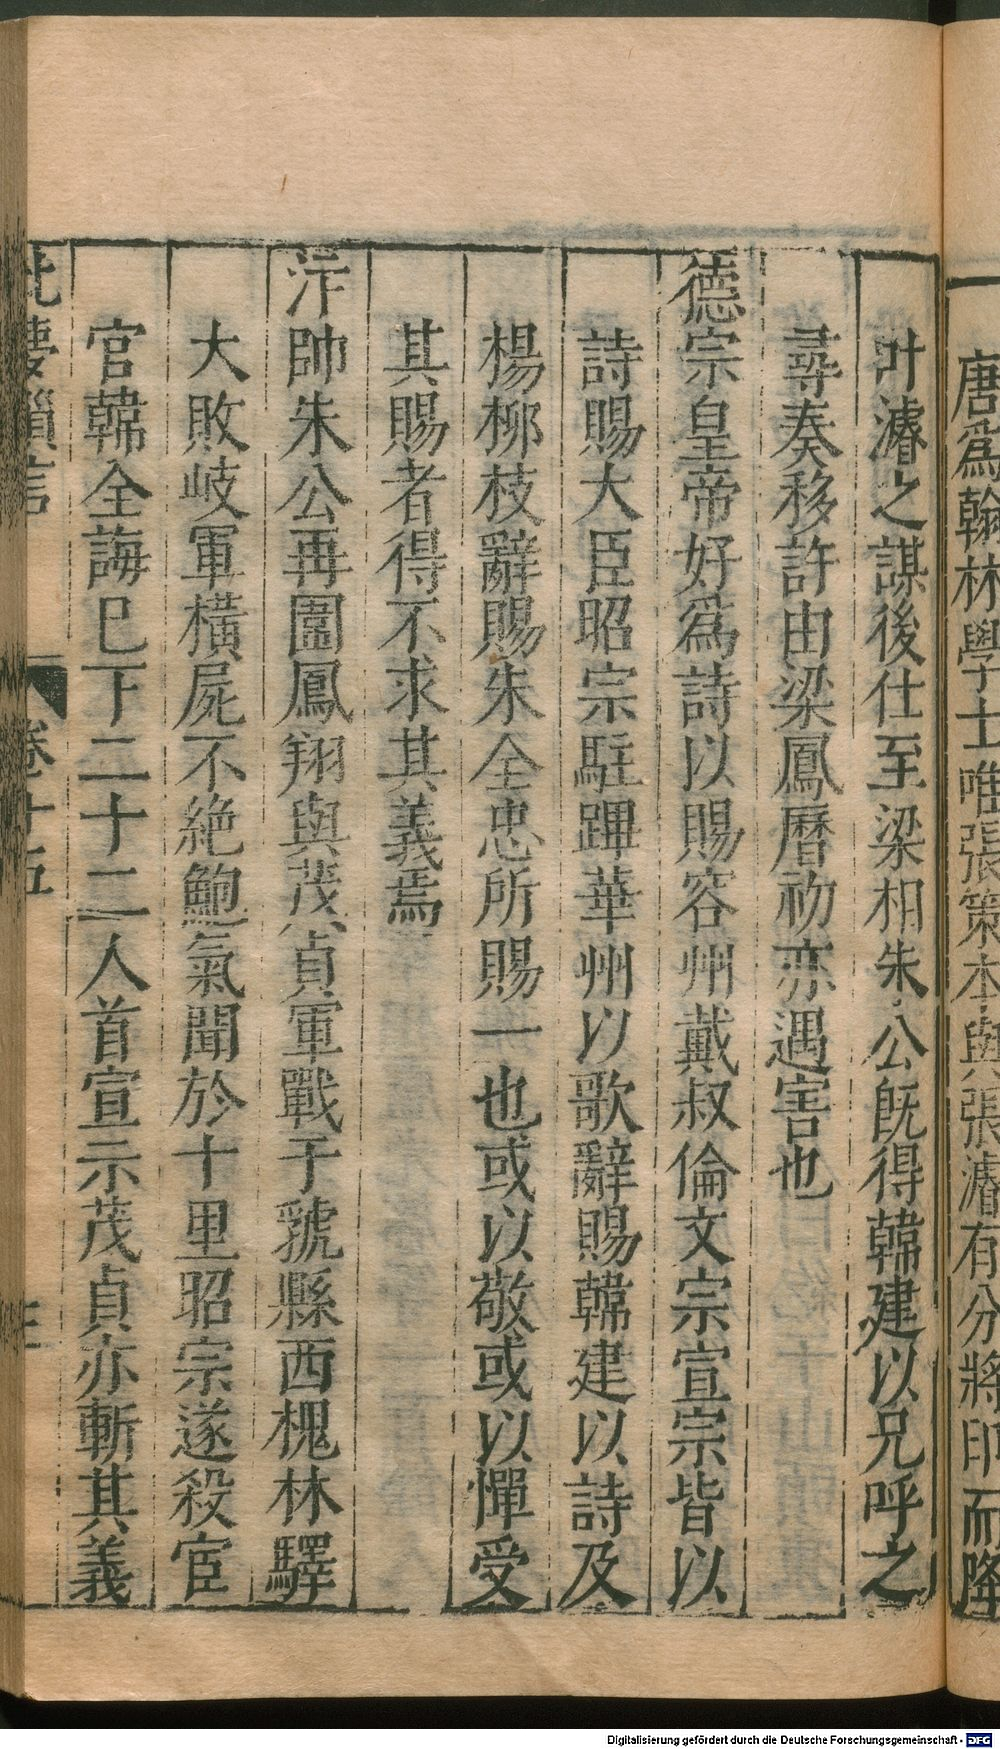 唐爲翰林學士唯張策本與張濬有分將印而降
叶濬之謀後仕至梁相朱公旣得韓建以兄呼之
尋奏移許由梁鳳曆初亦遇害也
德宗皇帝好爲詩以賜容州戴叔倫文宗宣宗皆以
詩賜大臣昭宗駐蹕華州以歌辭賜韓建以詩及
楊柳枝辭賜朱全忠所賜一也或以敬或以憚受
其賜者得不求其義焉
汴帥朱公再圍鳳翔與茂貞軍戰于虢縣西槐林驛
大敗岐軍橫屍不絶鮑氣聞於十里昭宗遂殺宦
官韓全誨巳下二十二人首宣示茂貞亦斬其義
北夢瑣言
卷十五
Digitalisierung gefördert durch die Deutsche Forschungsgemeinschaft - DFG